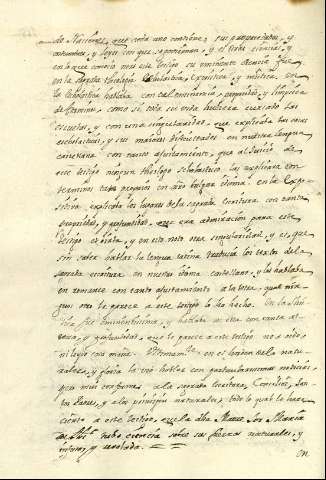 de Naciones, que cada uno contiene, sus propriedades, y
costumbres, y leyes con que se goviernan, y el trato
en lo que conocio mas este testigo su eminente ciencia fue
en la sagrada theologia escholastica, expositiva, y mistica. en
la escholastica hablava con tal eminencia, propiedad, y limpieza
de terminos, como si toda su vida huviera cursado las
escuelas, y con una singularidad, que explicaba las cosas
escholasticas, y sus maiores dificultades en nuestra lengua
castellana con tanto ajustamiento, que al juicio de
este testigo ningun theologo scholastico las explicara con
terminos tan propios en año vulgar idioma. en la Expo-
sitiva explicaba los lugares de la sagrada Escritura con tanta
propriedad, y que era admiracion para este
testigo oyrla, y en esto noto otra singularidad, y es, que
sin saber hablar la lengua latina traducia los textos de la
sagrada escritura en nuestro idioma castellano, y los hablaba
en romance con tanto ajustamiento a la letra, qual nin-
gun otro le parece a este testigo lo ha hecho. En la
fue eminentissima, y hablaba en ella con tanta al-
teza, y que le parece a este testigo no a oido,
ni leydo cosa maior. en el orden de la natu-
raleza, y fisica la oio hablar con particularissimas noticias,
pero muy conformes a la sagrada Escritura, Concilios, San-
tos Padres, y a los principios naturales, todo lo qual le hace
cierto a este testigo, que la dha Madre Sor Maria
de Jhs tubo ciencia sobre sus fuerzas naturales, y
infusa, y revelada.
en